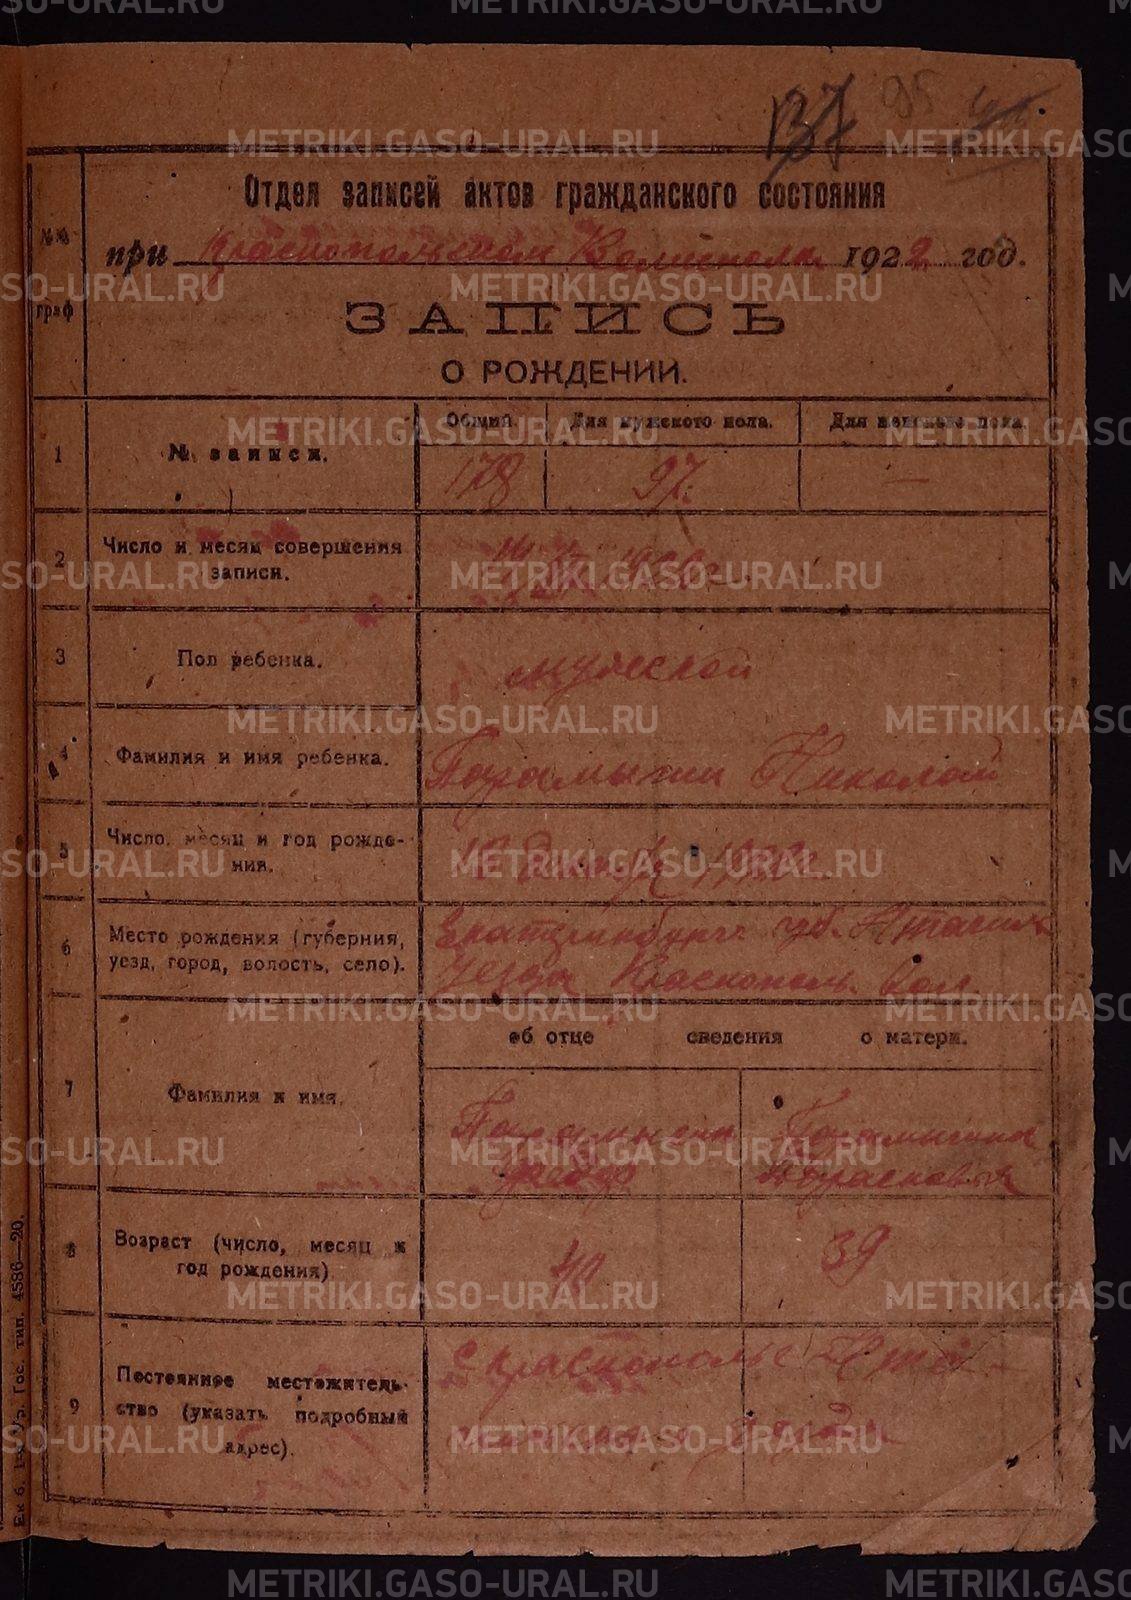 137 95
Отдел записей актов гражданского состояния
№№ граф
при Краснопольском Волисполк 1922 год.
ЗАПИСЬ
О РОЖДЕНИИ.
1 № записи. Общий. Для мужского пола. Для женского пола.
178 97. —
2 Число и месяц совершения
записи.
3 Пол ребенка. мужской
4 Фамилия и имя ребенка. Николай
5 Число, месяц и год рожде-
ния. декабр 1922 г.
6 Место рождения (губерния,
уезд, город, волость, село).
Екатеринбургс губ. Н Тагильс
уезда Краснополь. вол.
об отце сведения о матери.
7 Фамилия и имя.
Федор Парасковья
8 Возраст (число, месяц и
год рождения). 40 39
9 Постоянное местожитель-
ство (указать подробный
адрес).
с Краснополье Н Та-
уезда
Ек б. 1-я Ур. Гос. тип. 4586—20.
METRIKI.GASO-URAL.RU